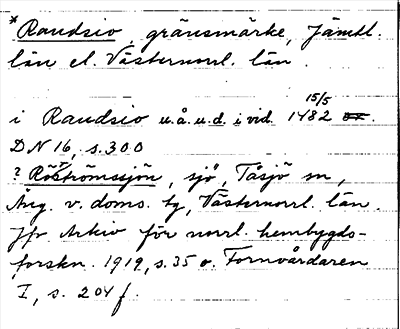 * Raudsio, gränsmärke, Jämtl.
län el. Västernorrl. län.
i Raudsio u.å.u.d. i vid. 15/5 1482
DN 16, s. 300
? Röströmssjön, sjö, Tåsjö sn,
Ång. v. doms. tg, Västernorrl. län.
Jfr Arkiv för norrl. hembygds-
forskn. 1919, s. 35 o. Fornvårdaren
I, s. 204 f.